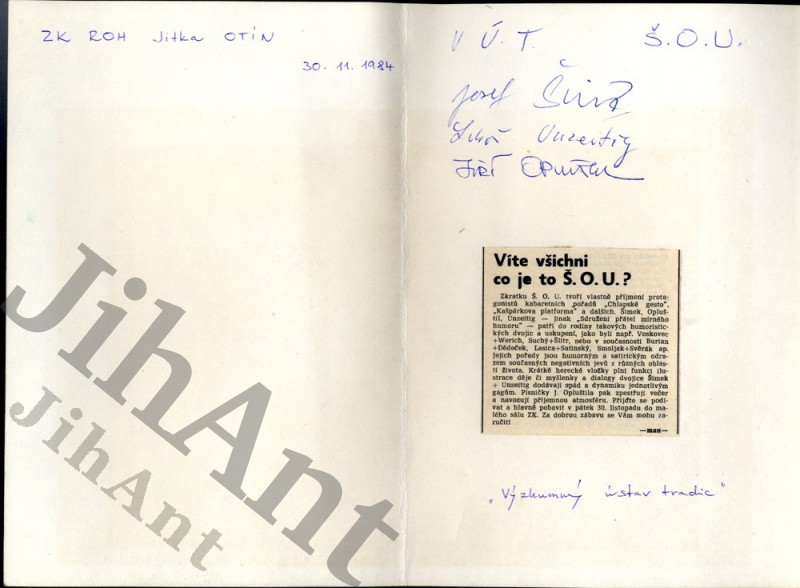 ZK ROH Jitka OTÍN
30. 11. 1984
V Ú. T. Š. O. U.
Josef
Unzeitig
Jiří Opluštil
Víte všichni
co je to Š. O. U. ?
Zkratku Š. O. U. tvoří vlastně příjmení prota-
gonistů kabaretních pořadů „Chlapské gesto",
„Kašpárkova platforma" a dalších. Šimek, Opluš-
til, Unzeitig — jinak „Sdružení přátel mírného
humoru" — patří do rodiny takových humoristic-
kých dvojic a uskupení, jako byli např. Voskovec
+Werich, Suchý+Šlitr, nebo v současnosti Burian
+Dědeček, Lasica+Satinský, Smoljak+Svěrák ap.
Jejich pořady jsou humorným a satirickým odra-
zem současných negativních jevů z různých oblas-
tí života. Krátké herecké vložky plní funkci ilu-
strace děje či myšlenky a dialogy dvojice Šimek
+ Unzeitig dodávají spád a dynamiku jednotlivým
gagům. Písničky J. Opluštila pak zpestřují večer
a navozují příjemnou atmosféru. Přijďte se podí-
vat a hlavně pobavit v pátek 30. listopadu do ma-
lého sálu ZK. Za dobrou zábavu se Vám mohu za-
ručit!
—man—
„Výzkumný ústav tradic"
JihAnt
JihAnt